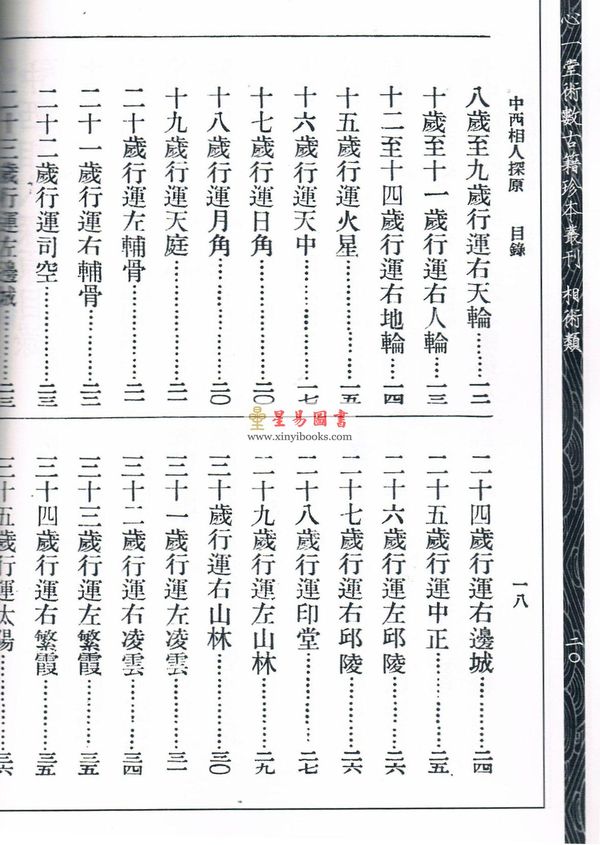 心一堂術數古籍珍本叢刊 相術類
二〇
中西相人探原 目錄
一八
八歲至九歲行運右天輪……一二
十歲至十一歲行運右人輪……一三
十二至十四歲行運右地輪……一四
十五歲行運火星……一五
十六歲行運天中……一七
十七歲行運日角……二〇
十八歲行運月角……二〇
十九歲行運天庭……二一
二十歲行運左輔骨……二一
二十一歲行運右輔骨……二二
二十二歲行運司空……二三
二十三歲行運左邊城……二三
二十四歲行運右邊城……二四
二十五歲行運中正……二五
二十六歲行運左邱陵……二六
二十七歲行運右邱陵……二六
二十八歲行運印堂……二七
二十九歲行運左山林……二九
三十歲行運右山林……三〇
三十一歲行運左凌雲……三一
三十二歲行運右凌雲……三四
三十三歲行運左繁霞……三五
三十四歲行運右繁霞……三五
三十五歲行運太陽……三六
星易圖書
www.xinyibooks.com